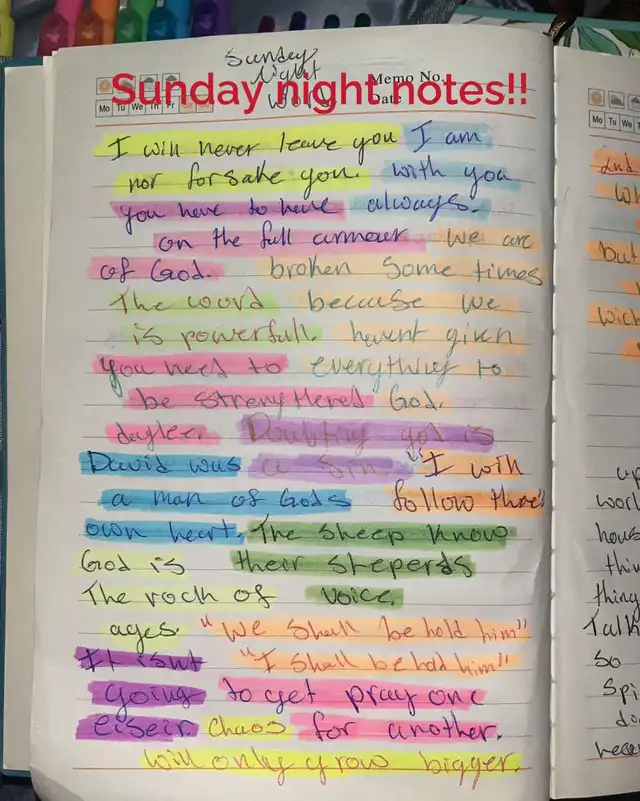 Sunday
night
Sunday night notes!!
Memo No.
Date
Mo Tu We Th Fr
I will never leave you I am
nor forsake you. with you
you have to have always.
on the full armour We are
of God. broken some times
The word because we
is powerfull. havent given
you need to everything to
be strengthered God.
daylee. Doubting god is
David was a sin. "I will
a man of Gods follow thro
own heart. The sheep know
God is their steperds
The rock of voice.
ages. "We shall be hold him"
It isnt "I shall be hold him"
going to get pray one
eiseir. chaos for another.
will only grow bigger.
Mo Tu We Th
and
Wh
but
wich
up
worl
hous
thin
thing
Talk
so
Spi
do